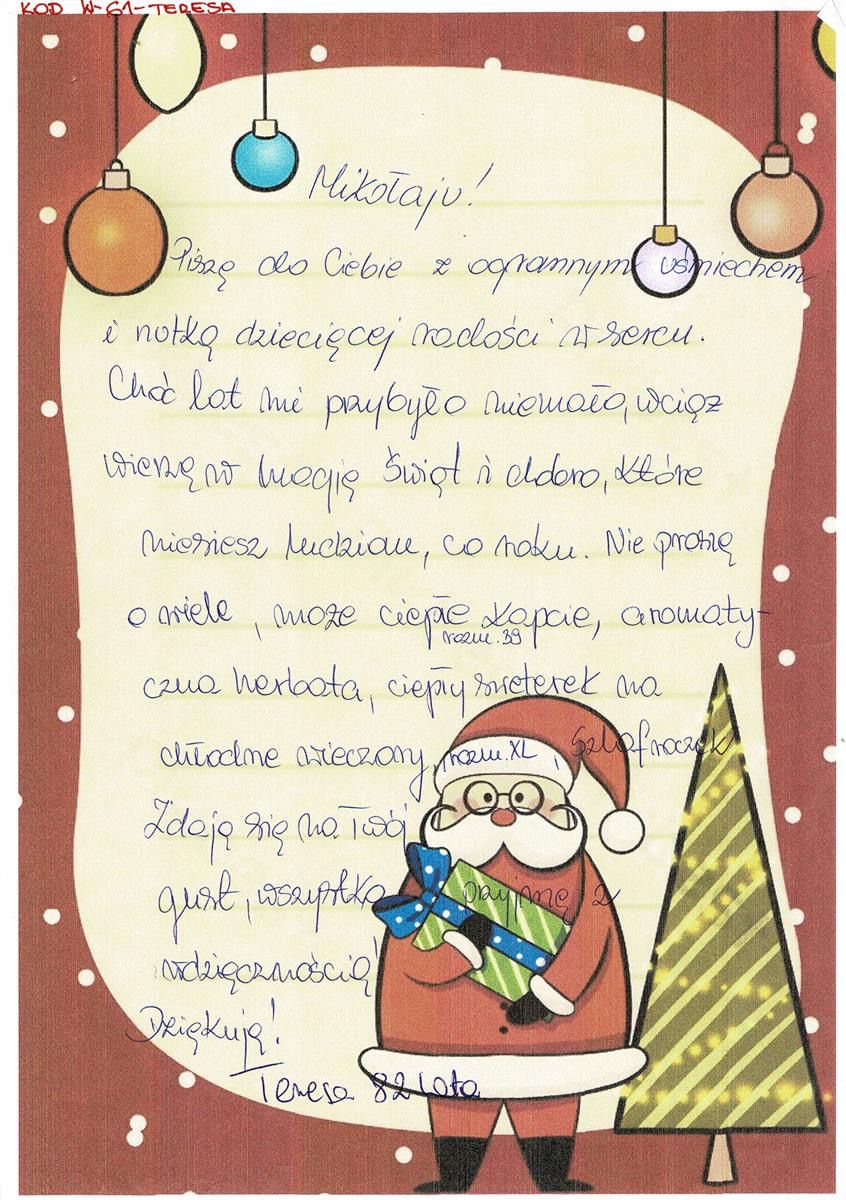 KOD W-61-TERESA
Mikołaju!
Piszę do Ciebie z ogromnym uśmiechem
i nutką dziecięcej radości w sercu.
Choć lat mi przybyło niemało, wciąż
wierzę w magię Świąt i dobro, które
niesiesz ludziom, co roku. Nie proszę
o wiele, może ciepłe kapcie, aromaty-
rozm. 39
czna herbata, ciepły sweterek na
chłodne wieczory, rozm. XL, Szlafroczek
Zdaję się na Twój
gust, wszystko przyjmę z
wdzięcznością!
Dziękuję!
Teresa 82 lata